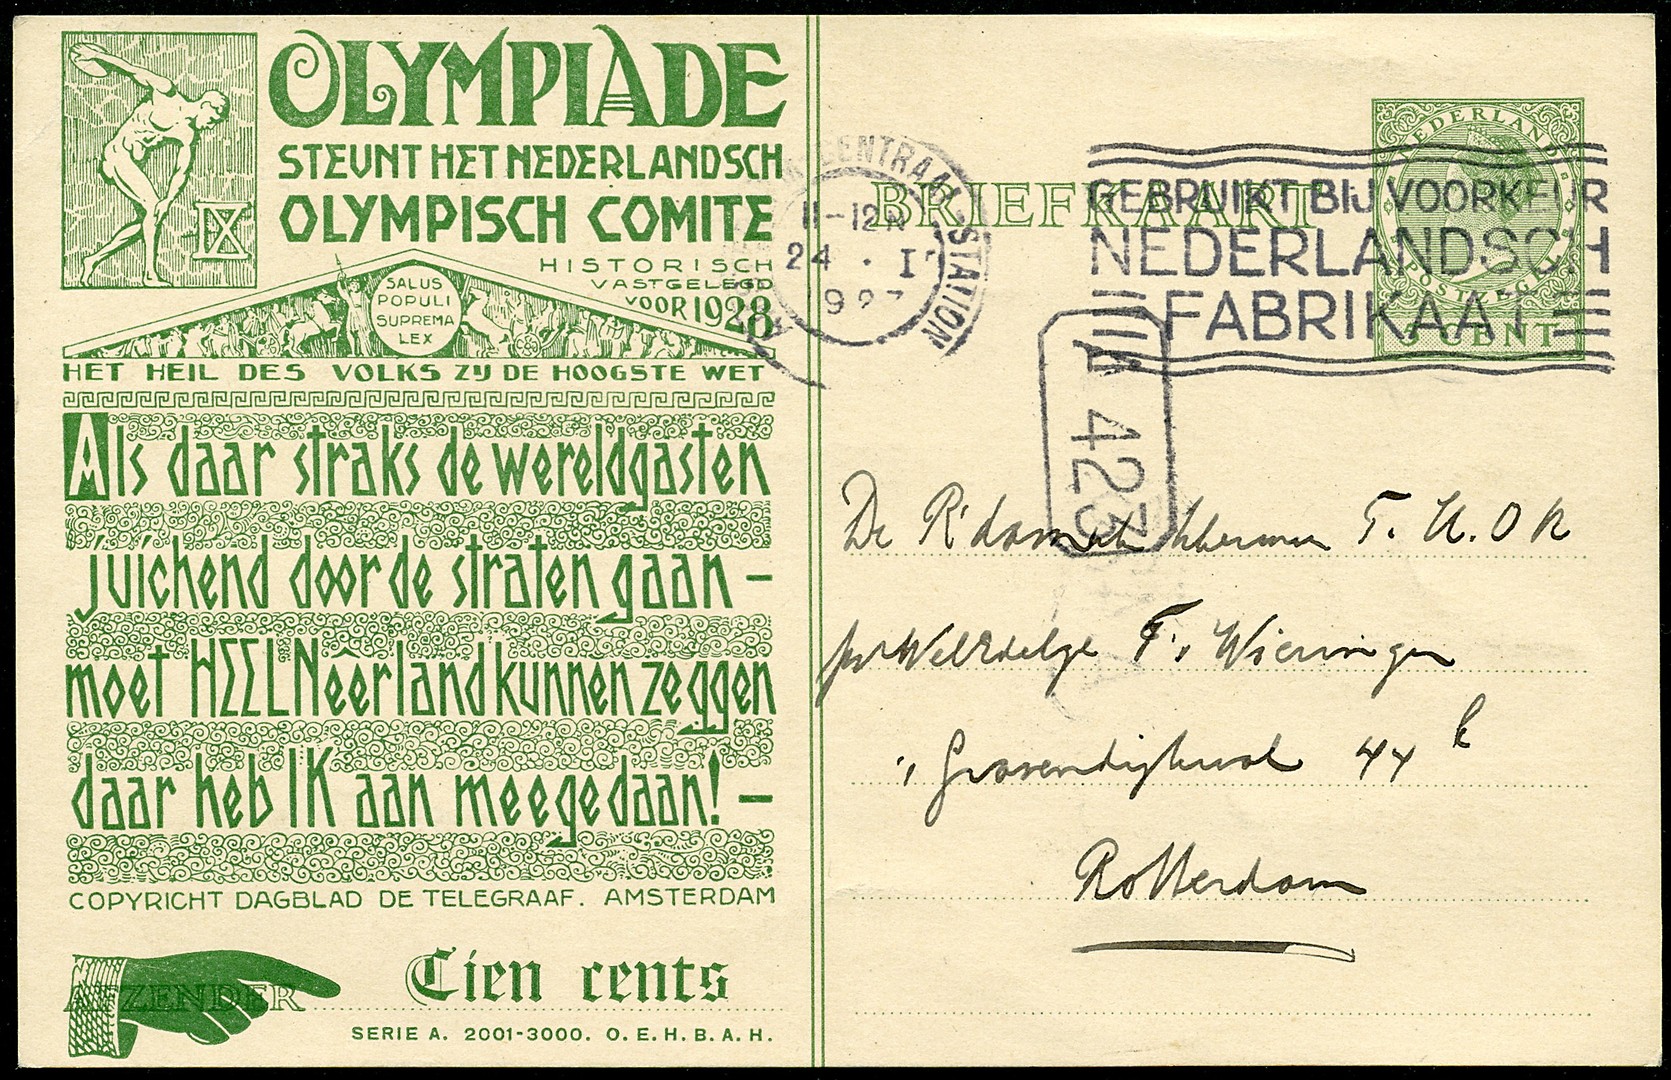 OLYMPIADE
STEUNT HET NEDERLANDSCH
OLYMPISCH COMITE
IX
HISTORISCH
VASTGELEGD
VOOR 1928
SALUS
POPULI
SUPREMA
LEX
HET HEIL DES VOLKS ZIJ DE HOOGSTE WET
Als daar straks de wereldgasten
juichend door de straten gaan –
moet HEEL Neêrland kunnen zeggen
daar heb IK aan meegedaan! –
COPYRICHT DAGBLAD DE TELEGRAAF. AMSTERDAM
AFZENDER
Tien cents
SERIE A. 2001-3000. O.E.H.B.A.H.
CENTRAAL STATION
11-12 N
24 . I
1927
BRIEFKAART
GEBRUIKT BIJ VOORKEUR
NEDERLANDSCH
FABRIKAAT
NEDERLAND
POSTZEGEL
5 CENT
423
De R'damsch
WelEdelge F. Wieringen
44
Rotterdam